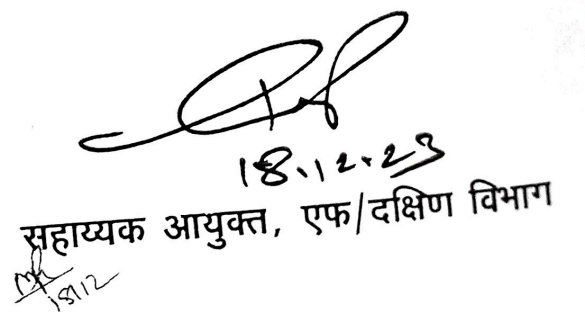 18.12.23
सहाय्यक आयुक्त, एफ/दक्षिण विभाग
18/12